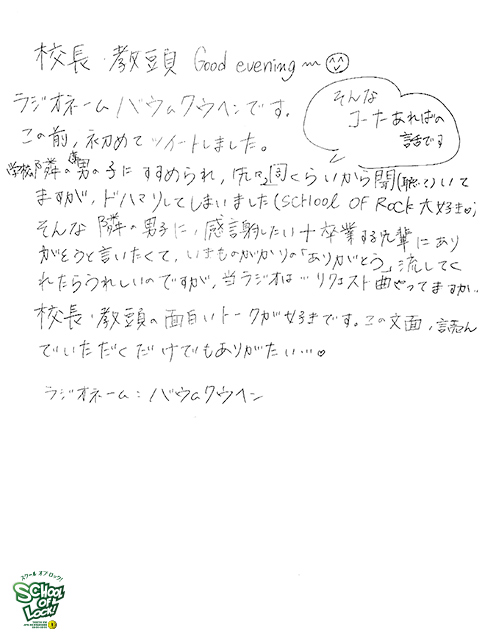 校長・教頭 Good evening〜
ラジオネーム バウムクウヘンです。
この前、初めてツイートしました。
そんな
コーナーあればの
話です
学校の隣の席の男の子にすすめられ、先々週くらいから開(聴いて)いて
ますが、ドハマりしてしまいました(SCHOOL OF ROCK 大好き
そんな 隣の男子に、感謝したい+卒業する先輩にあり
がとうと言いたくて、いきものがかりの「ありがとう」流してく
れたらうれしいのですが、当ラジオは…リクエスト曲やってますか…
校長・教頭の面白いトークが好きです。この文面、読ん
でいただくだけでもありがたい…♡
ラジオネーム:バウムクウヘン
スクール オブ ロック!
SCHOOL
OF
LOCK!